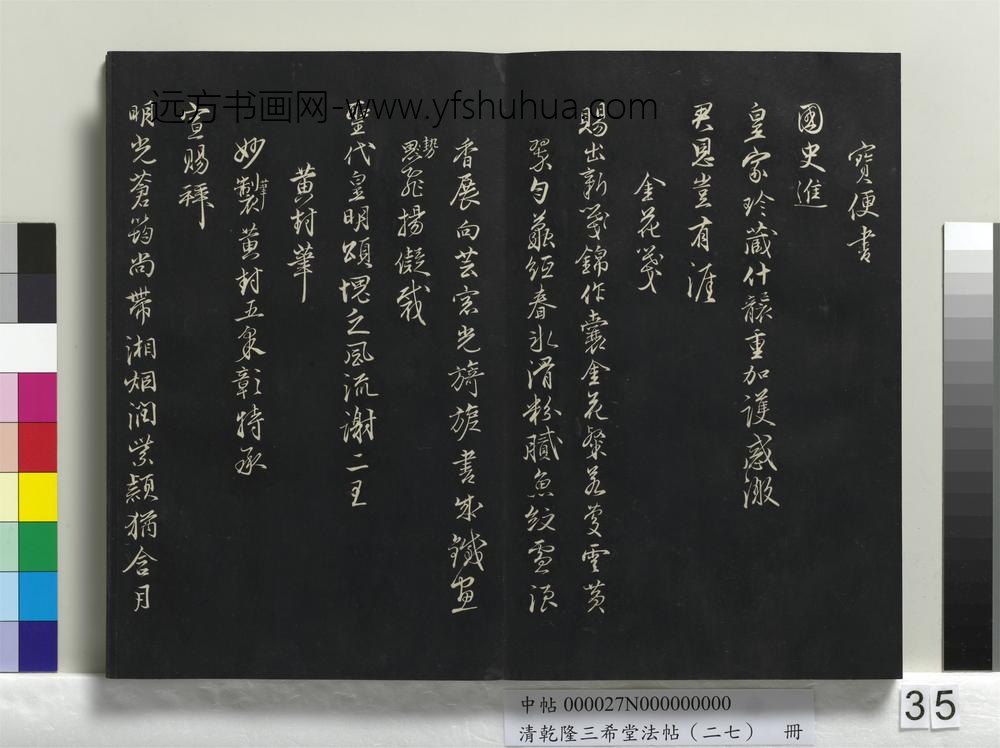 远方书画网-www.yfshuhua.com
寶便書
國史進
皇家珍蔵什襲重加護感激
君恩豈有涯
金花箋
賜出新箋錦作囊金花燦若雲黄
翠勻紅春冰滑粉膩魚紋雪浪
香展向芸窓光旖旎書成鐵畫
勢思飛揚儗裁
聖代皇明頌愧乏風流謝二王
黄封筆
妙製筆黄封五采彰特承
宣賜拜
明光蒼筠尚帶湘烟潤紫穎猶含月
中帖 000027N000000000
清乾隆三希堂法帖（二七） 冊
35